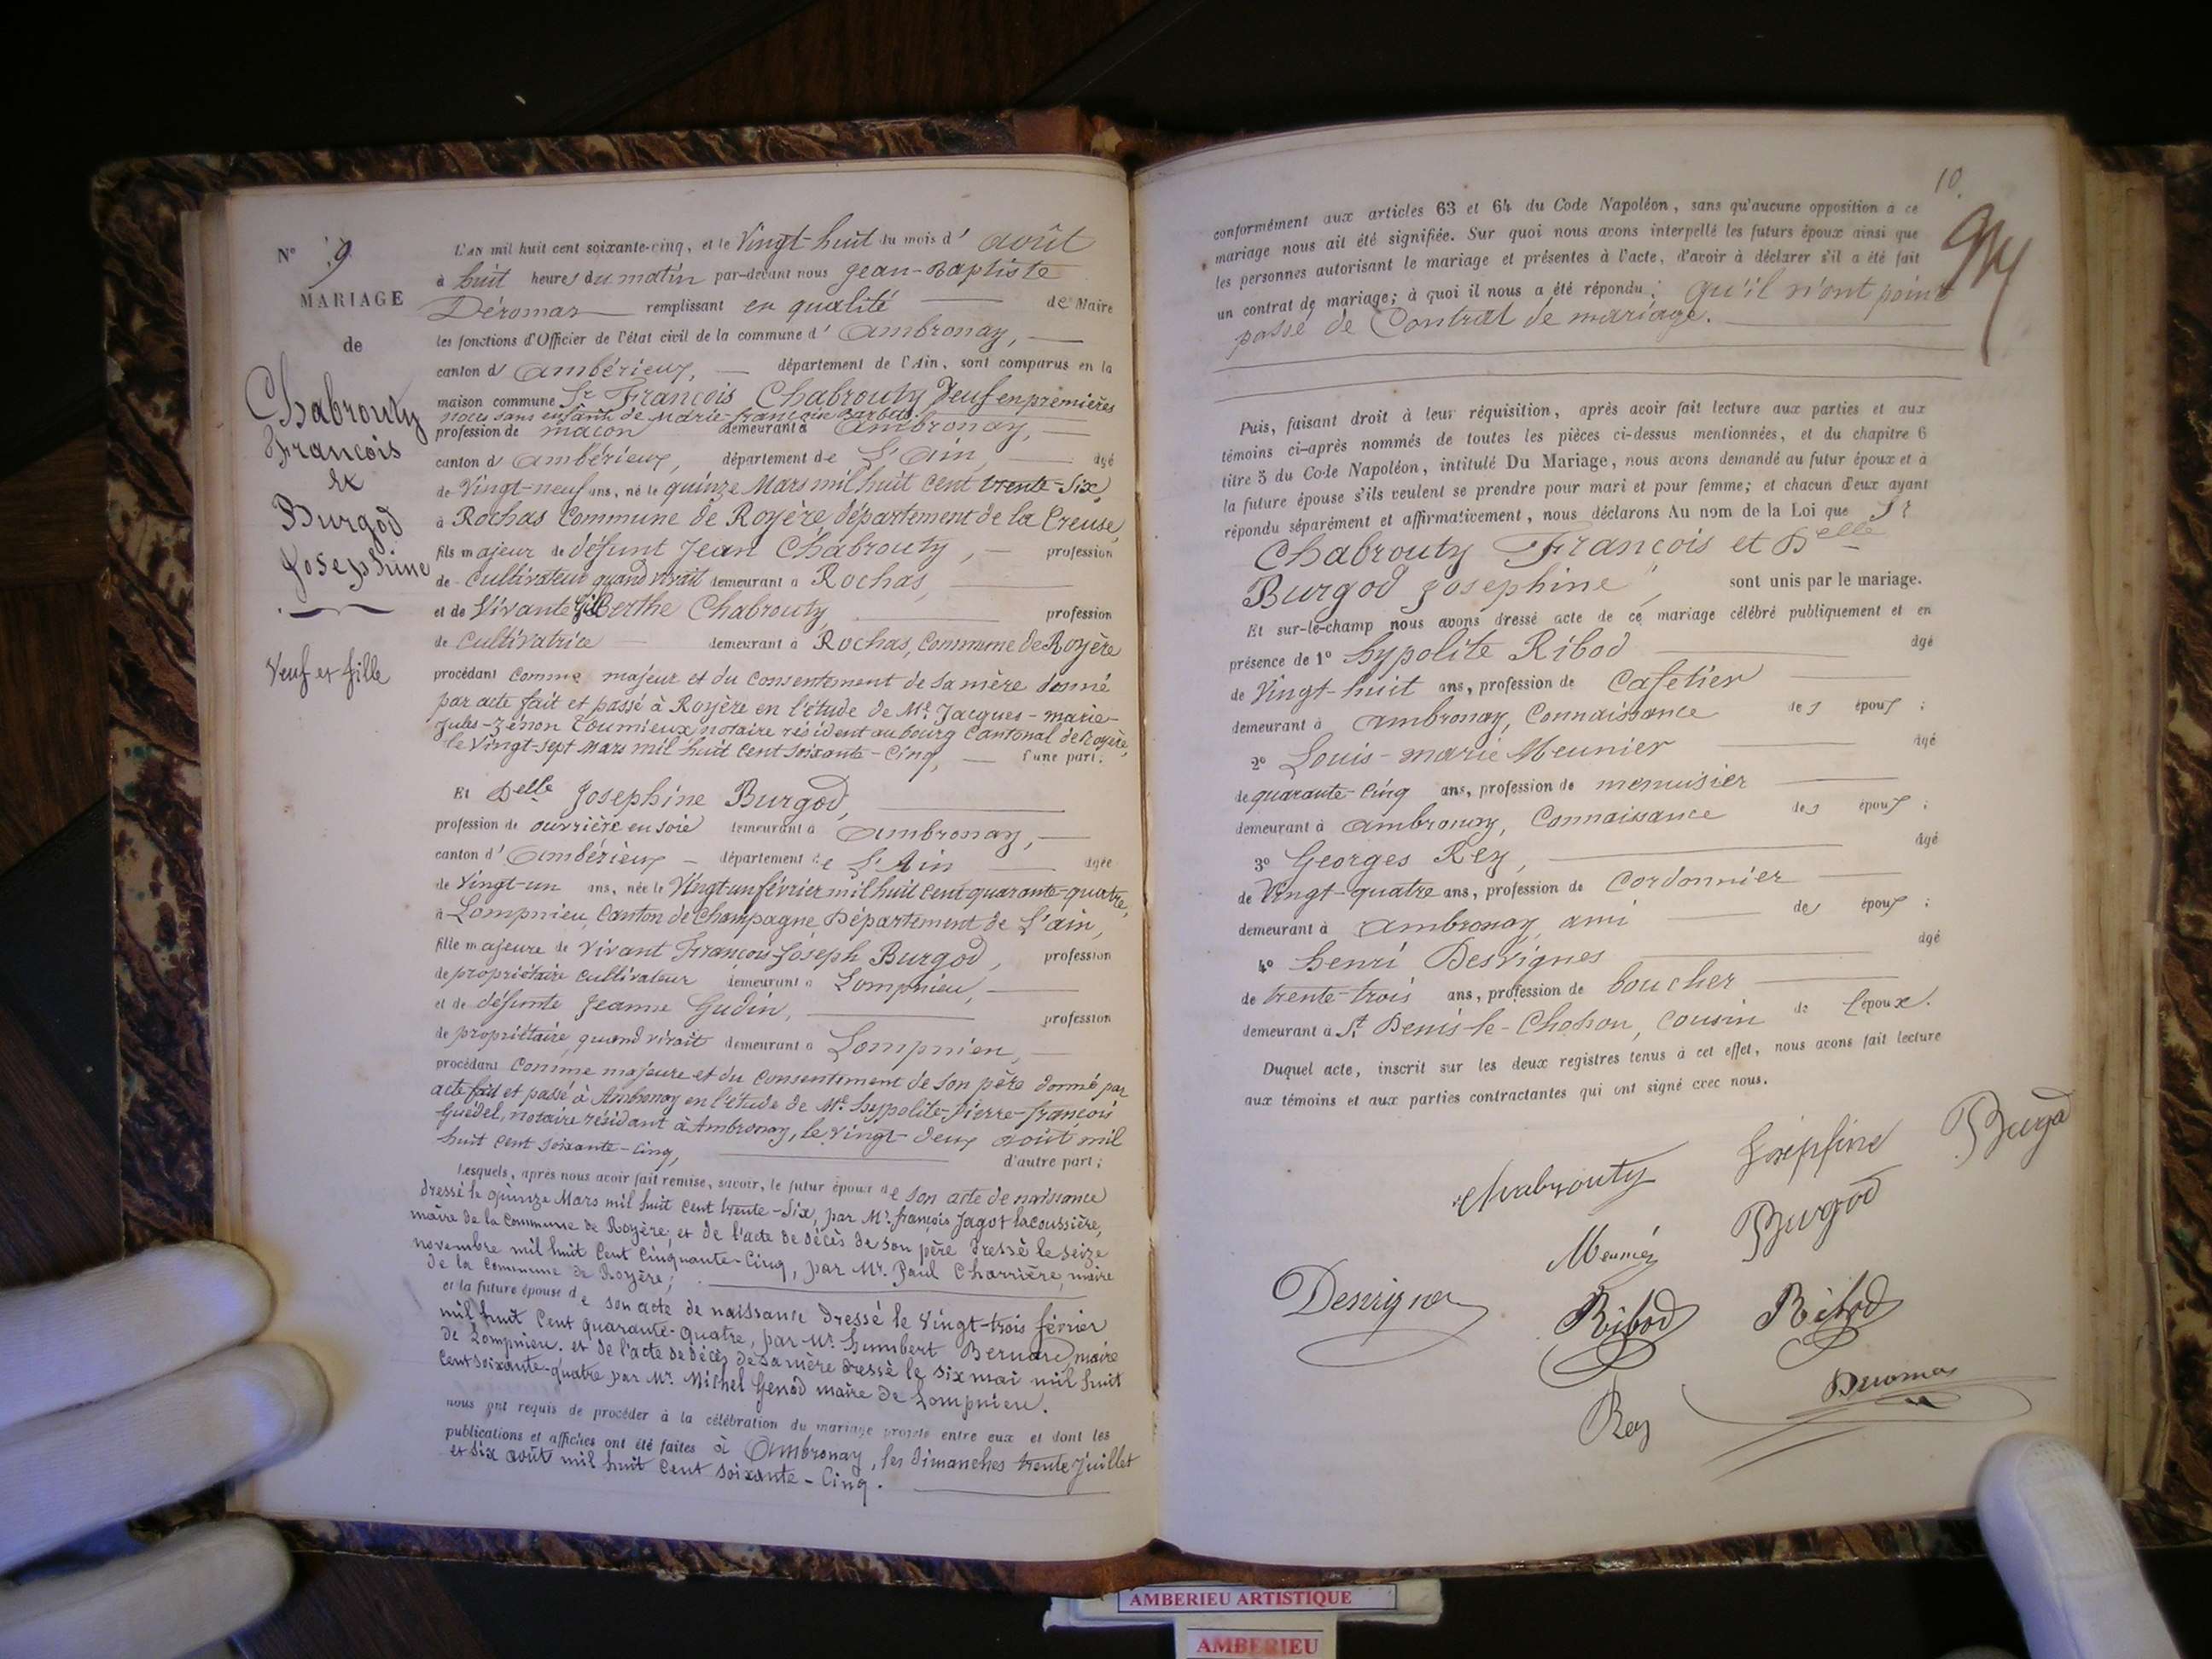 N° 9
MARIAGE
de
Chabrouty
François
&
Burgod
Josephine
Veuf et fille
L'an mil huit cent soixante-cinq, et le Vingt-huit du mois d' août
à huit heures du matin par-devant nous Jean-Baptiste
Déromas remplissant en qualité de Maire
les fonctions d'Officier de l'état civil de la commune d' Ambronay,
canton d' Ambérieux, département de l'Ain, sont comparus en la
maison commune Sr François Chabrouty Veuf en premières
noces sans enfants de Marie-françoise
profession de maçon demeurant à Ambronay,
canton d' Ambérieux, département de L'Ain, âgé
de Vingt-neuf ans, né le quinze Mars mil huit cent trente-six,
à Rochas Commune de Royère département de la Creuse,
fils majeur de défunt Jean Chabrouty, profession
de Cultivateur quand vivait demeurant à Rochas,
et de Vivante Gilberthe Chabrouty, profession
de Cultivatrice demeurant à Rochas, Commune de Royère
procédant Comme majeur et du Consentement de sa mère donné
par acte fait et passé à Royère en l'étude de Me Jacques-marie-
Jules-Zénon Toumieux notaire résident au bourg Cantonal de Royère,
le Vingt-sept Mars mil huit cent soixante-Cinq, d'une part;
Et Delle Josephine Burgod,
profession de ouvrière en soie demeurant à Ambronay,
canton d' Ambérieux département de L'Ain âgée
de Vingt-un ans, née le Vingt-un février mil huit cent quarante-quatre,
à Lompnieu, Canton de Champagne, Département de L'ain,
fille majeure de Vivant François Joseph Burgod, profession
de propriétaire cultivateur demeurant à Lompnieu,
et de défunte Jeanne Gudin, profession
de propriétaire quand vivait demeurant à Lompnieu,
procédant Comme majeure et du Consentement de son père donné par
acte fait et passé à Ambronay en l'étude de Me hyppolite-Pierre-françois
Guédel, notaire résidant à Ambronay, le vingt-deux août mil
huit cent soixante-Cinq, d'autre part;
Lesquels, après nous avoir fait remise, savoir, le futur époux de son acte de naissance
dressé le quinze Mars mil huit Cent trente-six, par Mr. françois Jagot lacoussière,
maire de la Commune de Royère, et de l'acte de décès de son père dressé le seize
novembre mil huit Cent Cinquante-Cinq, par Mr. Paul Charrière, maire
de la Commune de Royère;
et la future épouse de son acte de naissance dressé le Vingt-trois février
mil huit Cent quarante-quatre, par Mr. humbert Bernard, maire
de Lompnieu. et de l'acte de décès de sa mère dressé le six mai mil huit
Cent soixante-quatre par Mr. Michel Genod maire de Lompnieu.
nous ont requis de procéder à la célébration du mariage projeté entre eux et dont les
publications et affiches ont été faites à Ambronay, les dimanches trente Juillet
et six août mil huit Cent soixante-Cinq.
10.
conformément aux articles 63 et 64 du Code Napoléon, sans qu'aucune opposition à ce
mariage nous ait été signifiée. Sur quoi nous avons interpellé les futurs époux ainsi que
les personnes autorisant le mariage et présentes à l'acte, d'avoir à déclarer s'il a été fait
un contrat de mariage; à quoi il nous a été répondu: qu'il n'ont point
passé de Contrat de mariage.
Puis, faisant droit à leur réquisition, après avoir fait lecture aux parties et aux
témoins ci-après nommés de toutes les pièces ci-dessus mentionnées, et du chapitre 6
titre 5 du Code Napoléon, intitulé Du Mariage, nous avons demandé au futur époux et à
la future épouse s'ils veulent se prendre pour mari et pour femme; et chacun d'eux ayant
répondu séparément et affirmativement, nous déclarons Au nom de la Loi que Sr
Chabrouty François et Delle
Burgod Josephine, sont unis par le mariage.
Et sur-le-champ nous avons dressé acte de ce mariage célébré publiquement et en
présence de 1° hypolite Ribod âgé
de Vingt-huit ans, profession de Cafetier
demeurant à Ambronay, Connaissance des époux;
2° Louis-marie Meunier âgé
de quarante-Cinq ans, profession de menuisier
demeurant à Ambronay, Connaissance des époux;
3° Georges Rey, âgé
de Vingt-quatre ans, profession de Cordonnier
demeurant à Ambronay ami des époux;
4° henri Desvignes âgé
de trente-trois ans, profession de boucher
demeurant à St Denis-le-Chosson, Cousin de l'époux.
Duquel acte, inscrit sur les deux registres tenus à cet effet, nous avons fait lecture
aux témoins et aux parties contractantes qui ont signé avec nous.
Chabrouty Joséphine Burgod
Meunier Burgod
Desvignes Ribod Ribod
Rey Deromas
AMBERIEU ARTISTIQUE
AMBERIEU